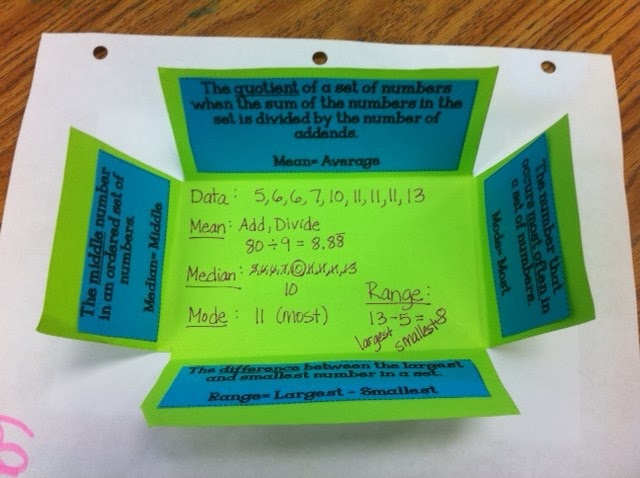 The quotient of a set of numbers
when the sum of the numbers in the
set is divided by the number of
addends.
Mean= Average
The middle number
in an ordered set of
numbers.
Median= Middle
Data: 5, 6, 6, 7, 10, 11, 11, 11, 13
Mean: Add, Divide
80 ÷ 9 = 8.88
Median: 5, 6, 6, 7, 10, 11, 11, 11, 13
10
Mode: 11 (most)
Range:
13 - 5 = 8
largest smallest
The number that
occurs most often in
a set of numbers.
Mode= Most
The difference between the largest
and smallest number in a set.
Range= Largest - Smallest